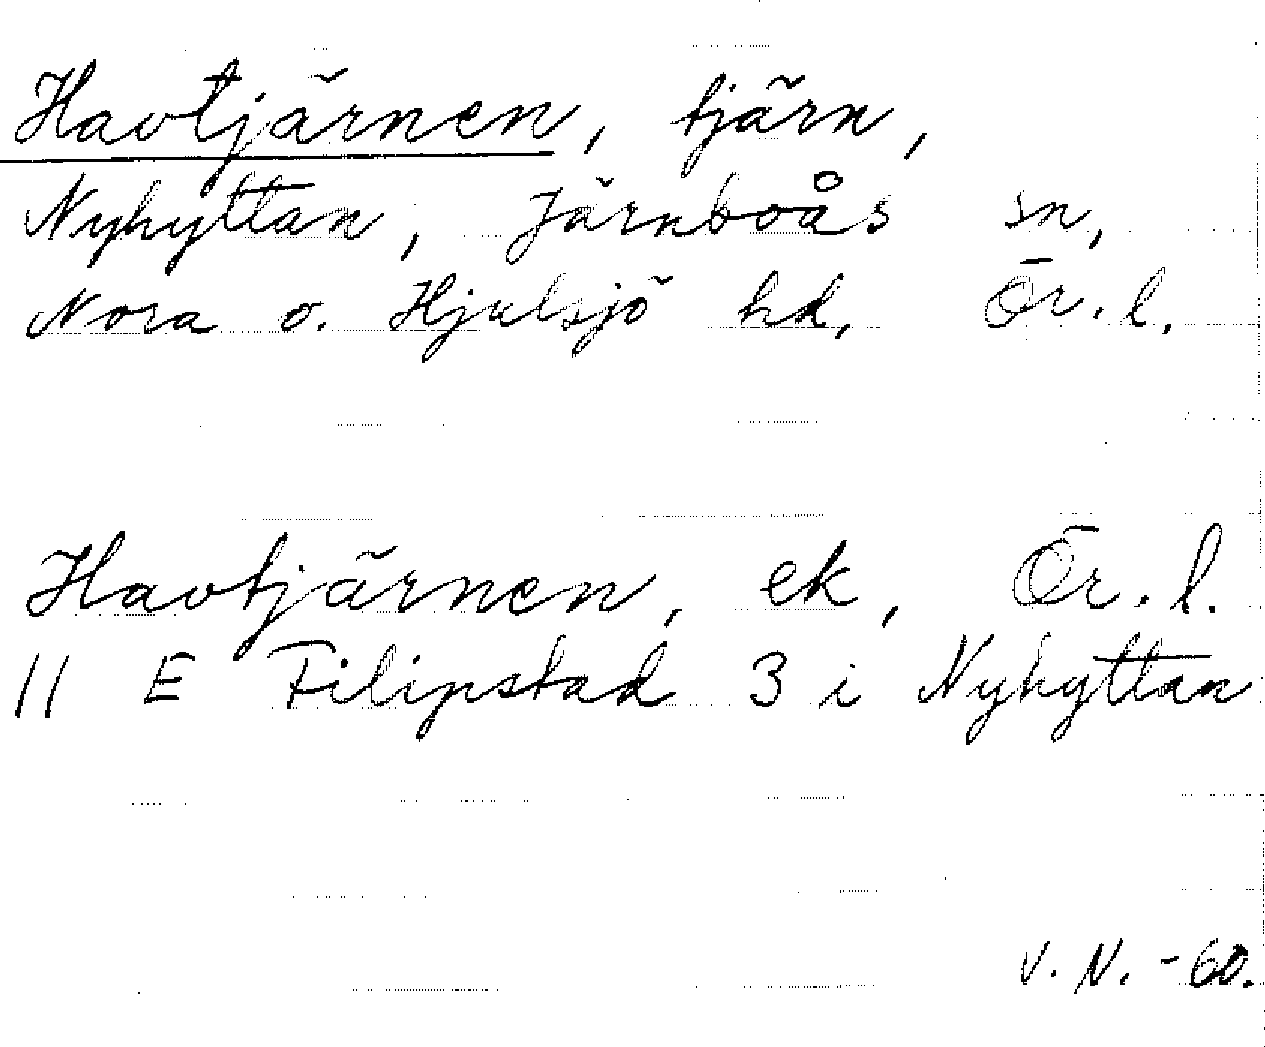 Havtjärnen, tjärn,
Nyhyttan, Järnboås sn,
Nora o. Hjulsjö hd, Ör. l.
Havtjärnen, ek, Ör. l.
11 E Filipstad 3 i Nyhyttan
V. N. -60.